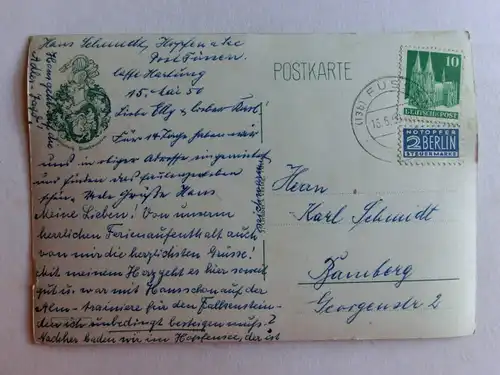 Hans Schmidt, Hopfen a. See
Post Füssen.
Caffe Hartung
15. Mai 50
Liebe Elly u. lieber Karl!
Für 14 Tage haben wir
uns in obiger Adresse eingenistet
und finden das
schön. Viele Grüße Hans
Meine Lieben! Von unserm
herrlichen Ferienaufenthalt auch
von mir die herzlichsten Grüsse!
Mit meinem Herz geht es hier soweit
gut u. war mit Hans schon auf der
Alm - trainiere für den Falkenstein -
den ich unbedingt besteigen muß!
Nachher baden wir im Hopfensee, der ist
POSTKARTE
10
DEUTSCHE POST
NOTOPFER
2 BERLIN
STEUERMARKE
(13b) FÜS
15.5.5
Herrn
Karl Schmidt
Bamberg
Georgenstr 2